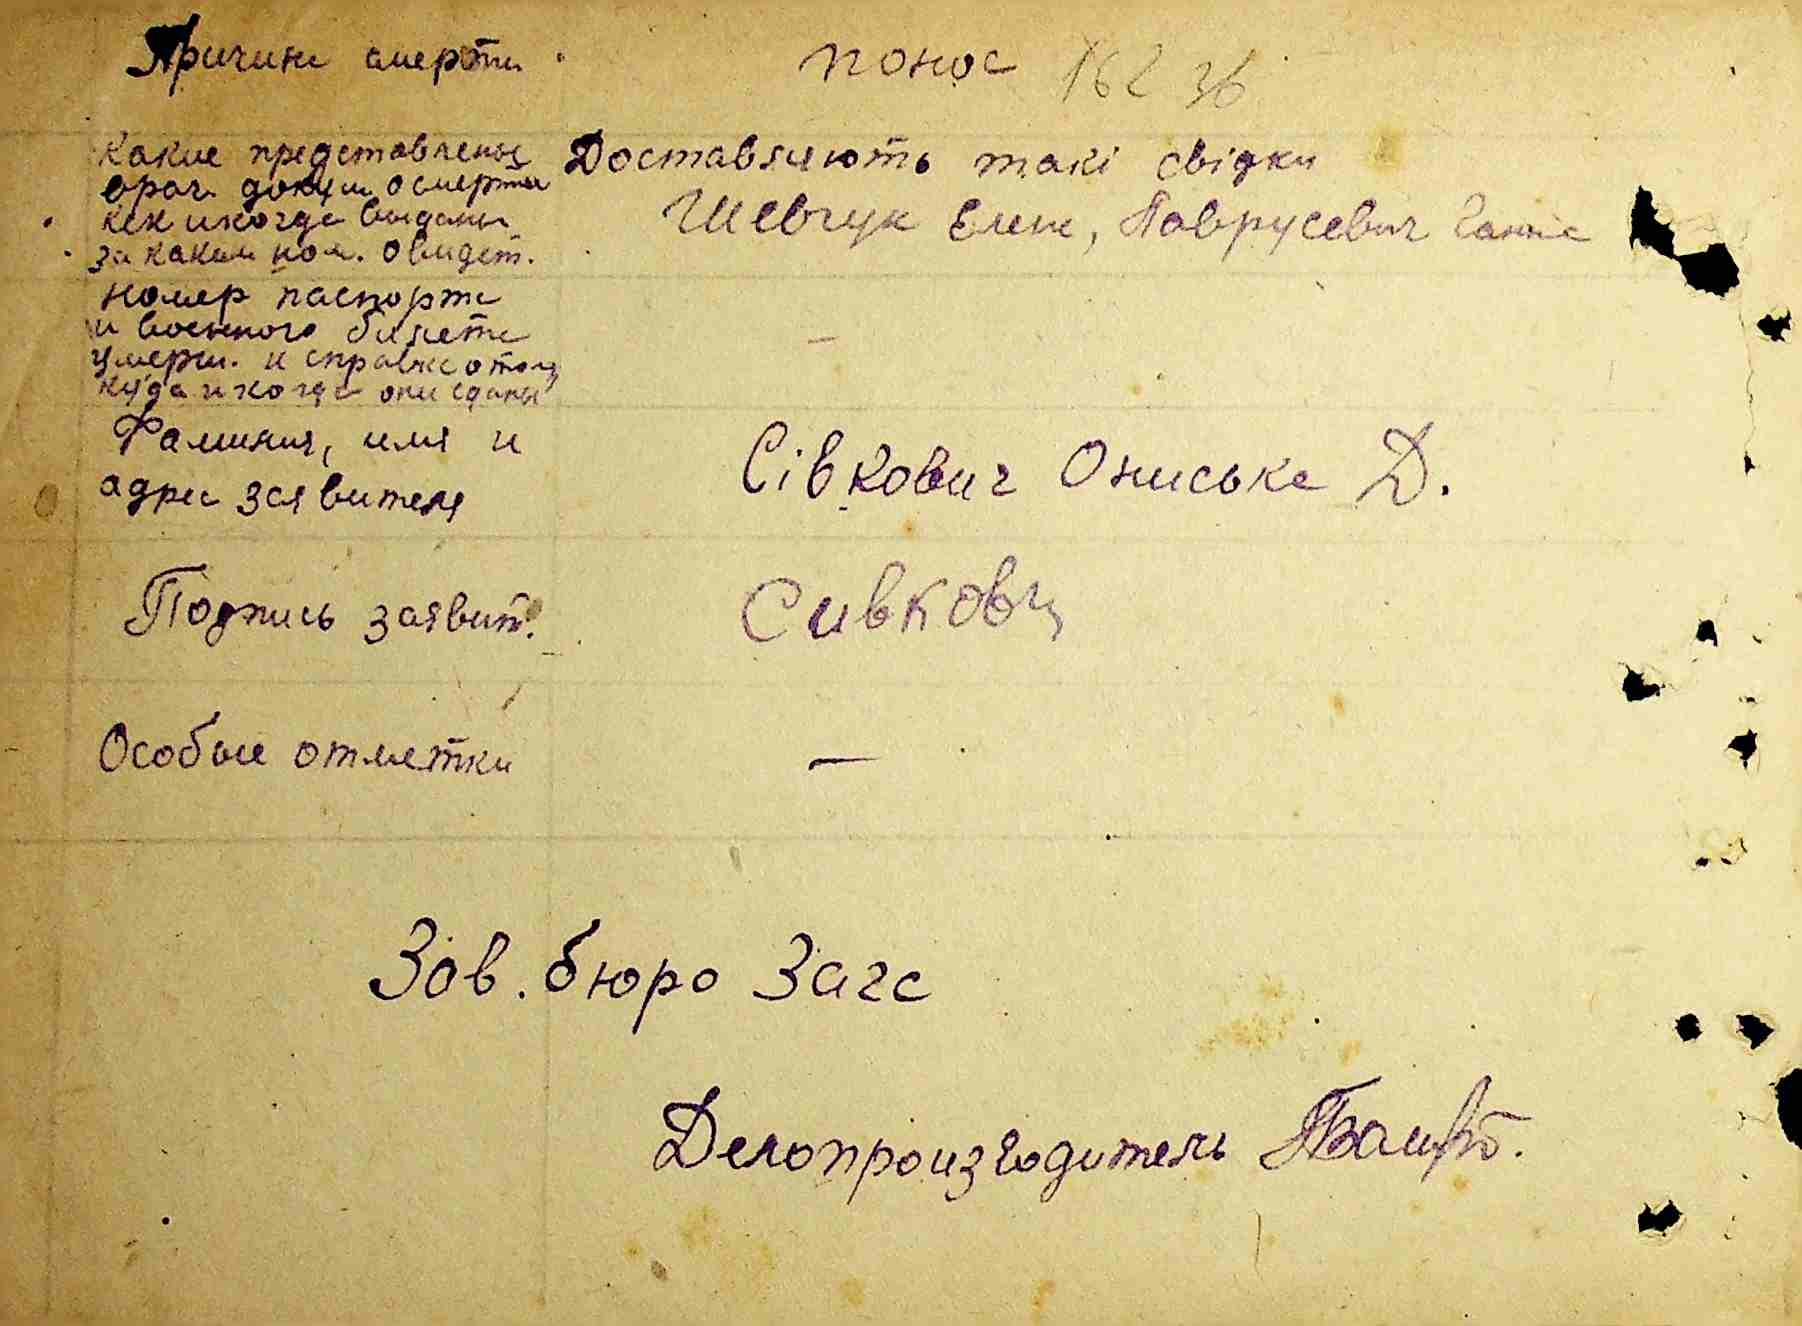 Причина смерти
понос
162 36
Какие представлены
врач. докум. о смерти
кем и когда выданы
за каким ном. свидет.
Доставляють такі свідки
Шевчук Елена, Паврусевич Ганна
номер паспорта
и военного билета
умерш. и справка о том
куда и когда они сданы
—
Фамилия, имя и
адрес заявителя
Сівкович Ониська Д.
Подпись заявит.
Сивкович
Особые отметки
—
Зав. бюро Загс
Делопроизводитель